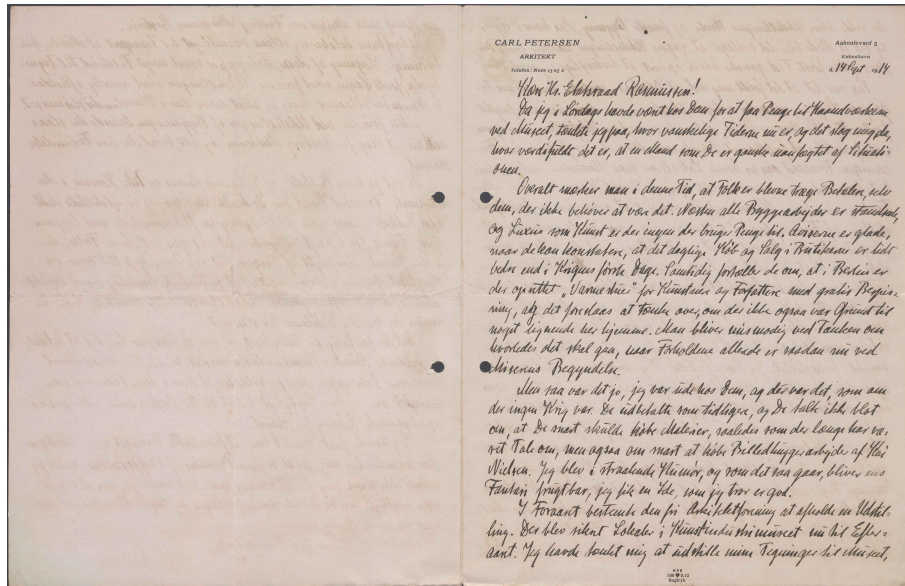 CARL PETERSEN
ARKITEKT
Telefon: Nora 1305 x
Aaboulevard 5
København
d. 14 Sept 1914
Kære Hr. Etatsraad Rasmussen!
Da jeg i Lørdags havde været hos Dem for at faa Penge til Haandværkerne
ved Museet, tænkte jeg paa, hvor vanskelige Tiderne nu er, og det slog mig da,
hvor værdifuldt det er, at en Mand som De er ganske uanfægtet af Situati-
onen.
Overalt mærker man i denne Tid, at Folk er blevne træge Betalere, selv
dem, der ikke behøver at være det. Næsten alle Byggearbejder er standsede,
og Luxus som Kunst er der ingen der bruger Penge til. Aviserne er glade,
naar de kan konstatere, at det daglige Køb og Salg i Butikkerne er lidt
bedre end i Krigens første Dage. Samtidig fortæller de om, at i Berlin er
der oprettet „Varmestuer" for Kunstnere og Forfattere med gratis Bespis-
ning, og det foreslaas at tænke over, om der ikke ogsaa var Grund til
noget lignende her hjemme. Man bliver mismodig ved Tanken om
hvorledes det skal gaa, naar Forholdene allerede er saadan nu ved
Miserens Begyndelse.
Men saa var det jo, jeg var ude hos Dem, og der var det, som om
der ingen Krig var. De udbetalte som tidligere, og De talte ikke blot
om, at De snart skulde købe Malerier, saaledes som der længe har væ-
ret Tale om, men ogsaa om snart at købe Billedhuggerarbejder af Kai
Nielsen. Jeg blev i straalende Humør, og som det saa gaar, bliver ens
Fantasi frugtbar, jeg fik en Ide, som jeg tror er god.
I Foraaret bestemte den fri Arkitektforening at afholde en Udstil-
ling. Der blev sikret Lokaler i Kunstindustrimuseet nu til Efter-
aaret. Jeg havde tænkt mig at udstille mine Tegninger til Museet,